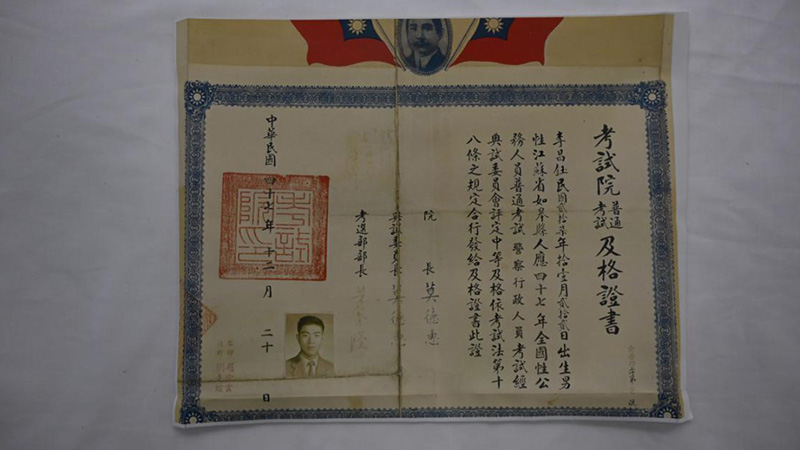 考試院普通考試及格證書
李昌任民國貳拾柒年拾壹月貳拾貳日出生男
性江蘇省如皋縣人應四十七年全國性公
務人員普通考試警察行政人員考試經
典試委員會評定中等及格依考試法第十
八條之規定合行發給及格證書此證
院長莫德惠
典試委員長莫德惠
考選部部長
中華民國四十七年十二月二十日
考試院印